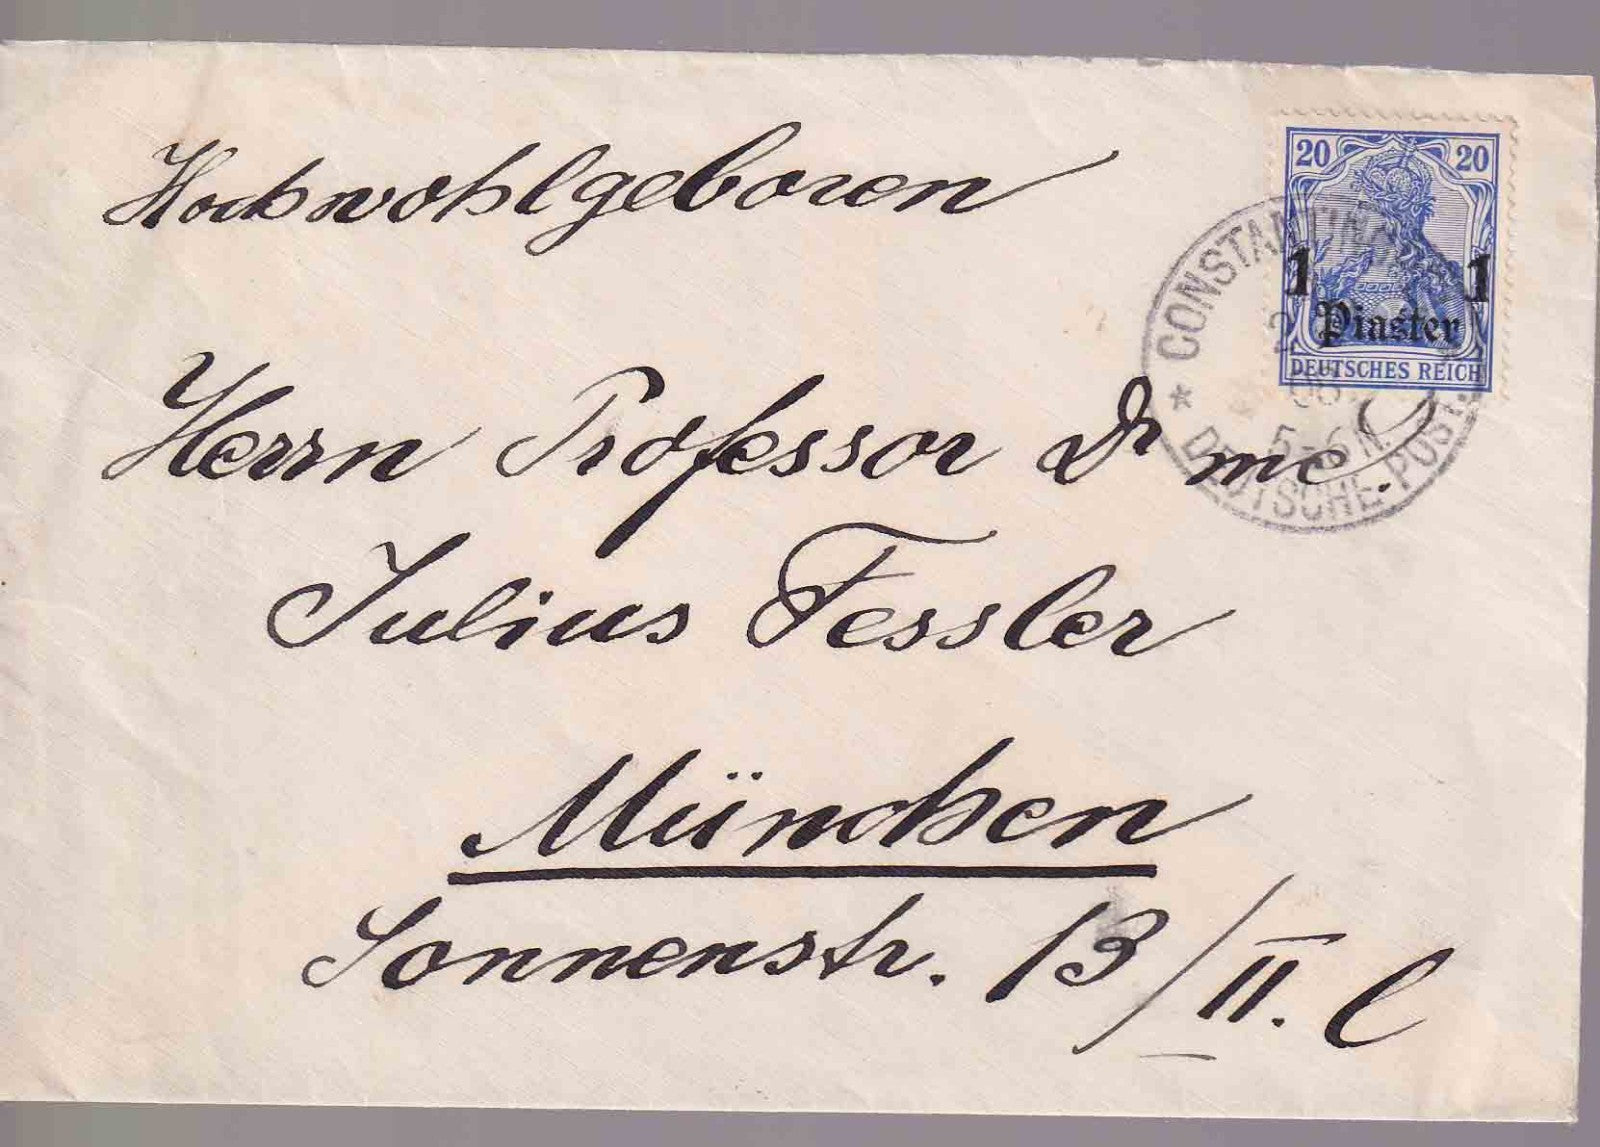 Hochwohlgeboren
20 20
1 1
Piaster
DEUTSCHES REICH
CONSTANTINOPEL
5-6 N.
* DEUTSCHE-POST.
Herrn Professor Dr me.
Julius Fessler
München
Sonnenstr. 13/II. l